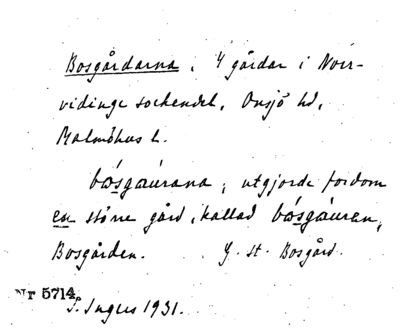 Bosgårdarna, 4 gårdar i Norr-
vidinge sockendel, Onsjö hd,
Malmöhus l.
bósgáurana, utgjorde fordom
en större gård, kallad bósgáuren,
Bosgården. Y. st. Bosgård.
Nr 5714.
S. Ingers 1931.